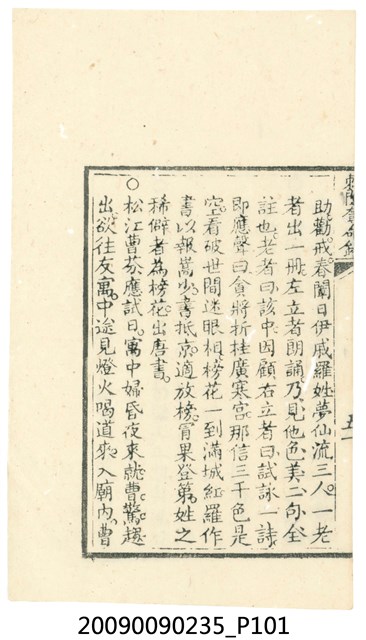 助勸戒春闈日伊戚羅姓夢仙流三人一老
者出一冊左立者朗誦乃見他色美二句全
註也老者曰該中因顧右立者曰試詠一詩
即應聲曰會將折桂廣寒宮那信三千色是
空看破世間迷眼相榜花一到滿城紅羅作
書以報嵩少書抵京適放榜冐果登第姓之
稀僻者為榜花出唐書
○松江曹芬應試日寓中婦昏夜來就曹驚趨
出欲往友寓中途見燈火喝道來入廟內曹
20090090235_P101